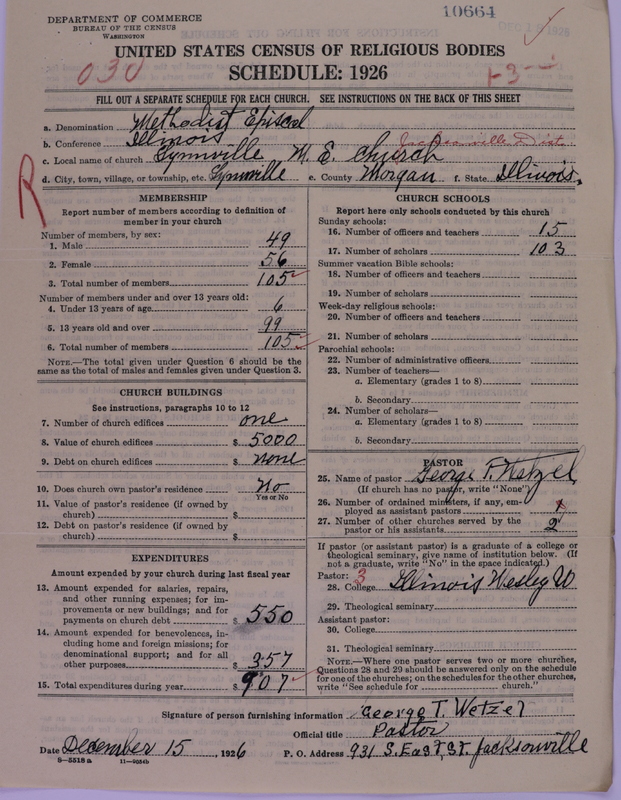 DEPARTMENT OF COMMERCE
BUREAU OF THE CENSUS
WASHINGTON
10664
UNITED STATES CENSUS OF RELIGIOUS BODIES
030
SCHEDULE: 1926
1-3--
FILL OUT A SEPARATE SCHEDULE FOR EACH CHURCH. SEE INSTRUCTIONS ON THE BACK OF THIS SHEET
a. Denomination Methodist Episcol
b. Conference Illinois Jacksonville Dist.
c. Local name of church Lynnville M. E. Church
d. City, town, village, or township, etc. Lynnville e. County Morgan f. State Illinois.
R
MEMBERSHIP
Report number of members according to definition of
member in your church
Number of members, by sex:
1. Male 49
2. Female 56
3. Total number of members 105
Number of members under and over 13 years old:
4. Under 13 years of age 6
5. 13 years old and over 99
6. Total number of members 105
NOTE.—The total given under Question 6 should be
same as the total of males and females given under Question 3.
CHURCH BUILDINGS
See instructions, paragraphs 10 to 12
7. Number of church edifices one
8. Value of church edifices $ 5000
9. Debt on church edifices $ none
10. Does church own pastor's residence No
Yes or No
11. Value of pastor's residence (if owned by
church) $
12. Debt on pastor's residence (if owned by
church) $
EXPENDITURES
Amount expended by your church during last fiscal year
13. Amount expended for salaries, repairs,
and other running expenses; for im-
provements or new buildings; and for
payments on church debt $ 550
14. Amount expended for benevolences, in-
cluding home and foreign missions; for
denominational support; and for all
other purposes $ 357
15. Total expenditures during year $ 907
CHURCH SCHOOLS
Report here only schools conducted by this church
Sunday schools:
16. Number of officers and teachers 15
17. Number of scholars 103
Summer vacation Bible schools:
18. Number of officers and teachers
19. Number of scholars
Week-day religious schools:
20. Number of officers and teachers
21. Number of scholars
Parochial schools:
22. Number of administrative officers
23. Number of teachers—
a. Elementary (grades 1 to 8)
b. Secondary
24. Number of scholars—
a. Elementary (grades 1 to 8)
b. Secondary
PASTOR
25. Name of pastor George T. Wetzel
(If church has no pastor, write "None")
26. Number of ordained ministers, if any, em-
ployed as assistant pastors
27. Number of other churches served by the
pastor or his assistants 2
If pastor (or assistant pastor) is a graduate of a college or
theological seminary, give name of institution below. (If
not a graduate, write "No" in the space indicated.)
Pastor: 3
28. College Illinois Wesley U
29. Theological seminary
Assistant pastor:
30. College
31. Theological seminary
NOTE.—Where one pastor serves two or more churches,
Questions 28 and 29 should be answered only on the schedule
for one of the churches; on the schedules for the other churches,
write "See schedule for church."
Signature of person furnishing information George T. Wetzel
Official title Pastor
Date December 15, 1926 P. O. Address 931 S. East, St. Jacksonville
8-5518 a 11-9054b